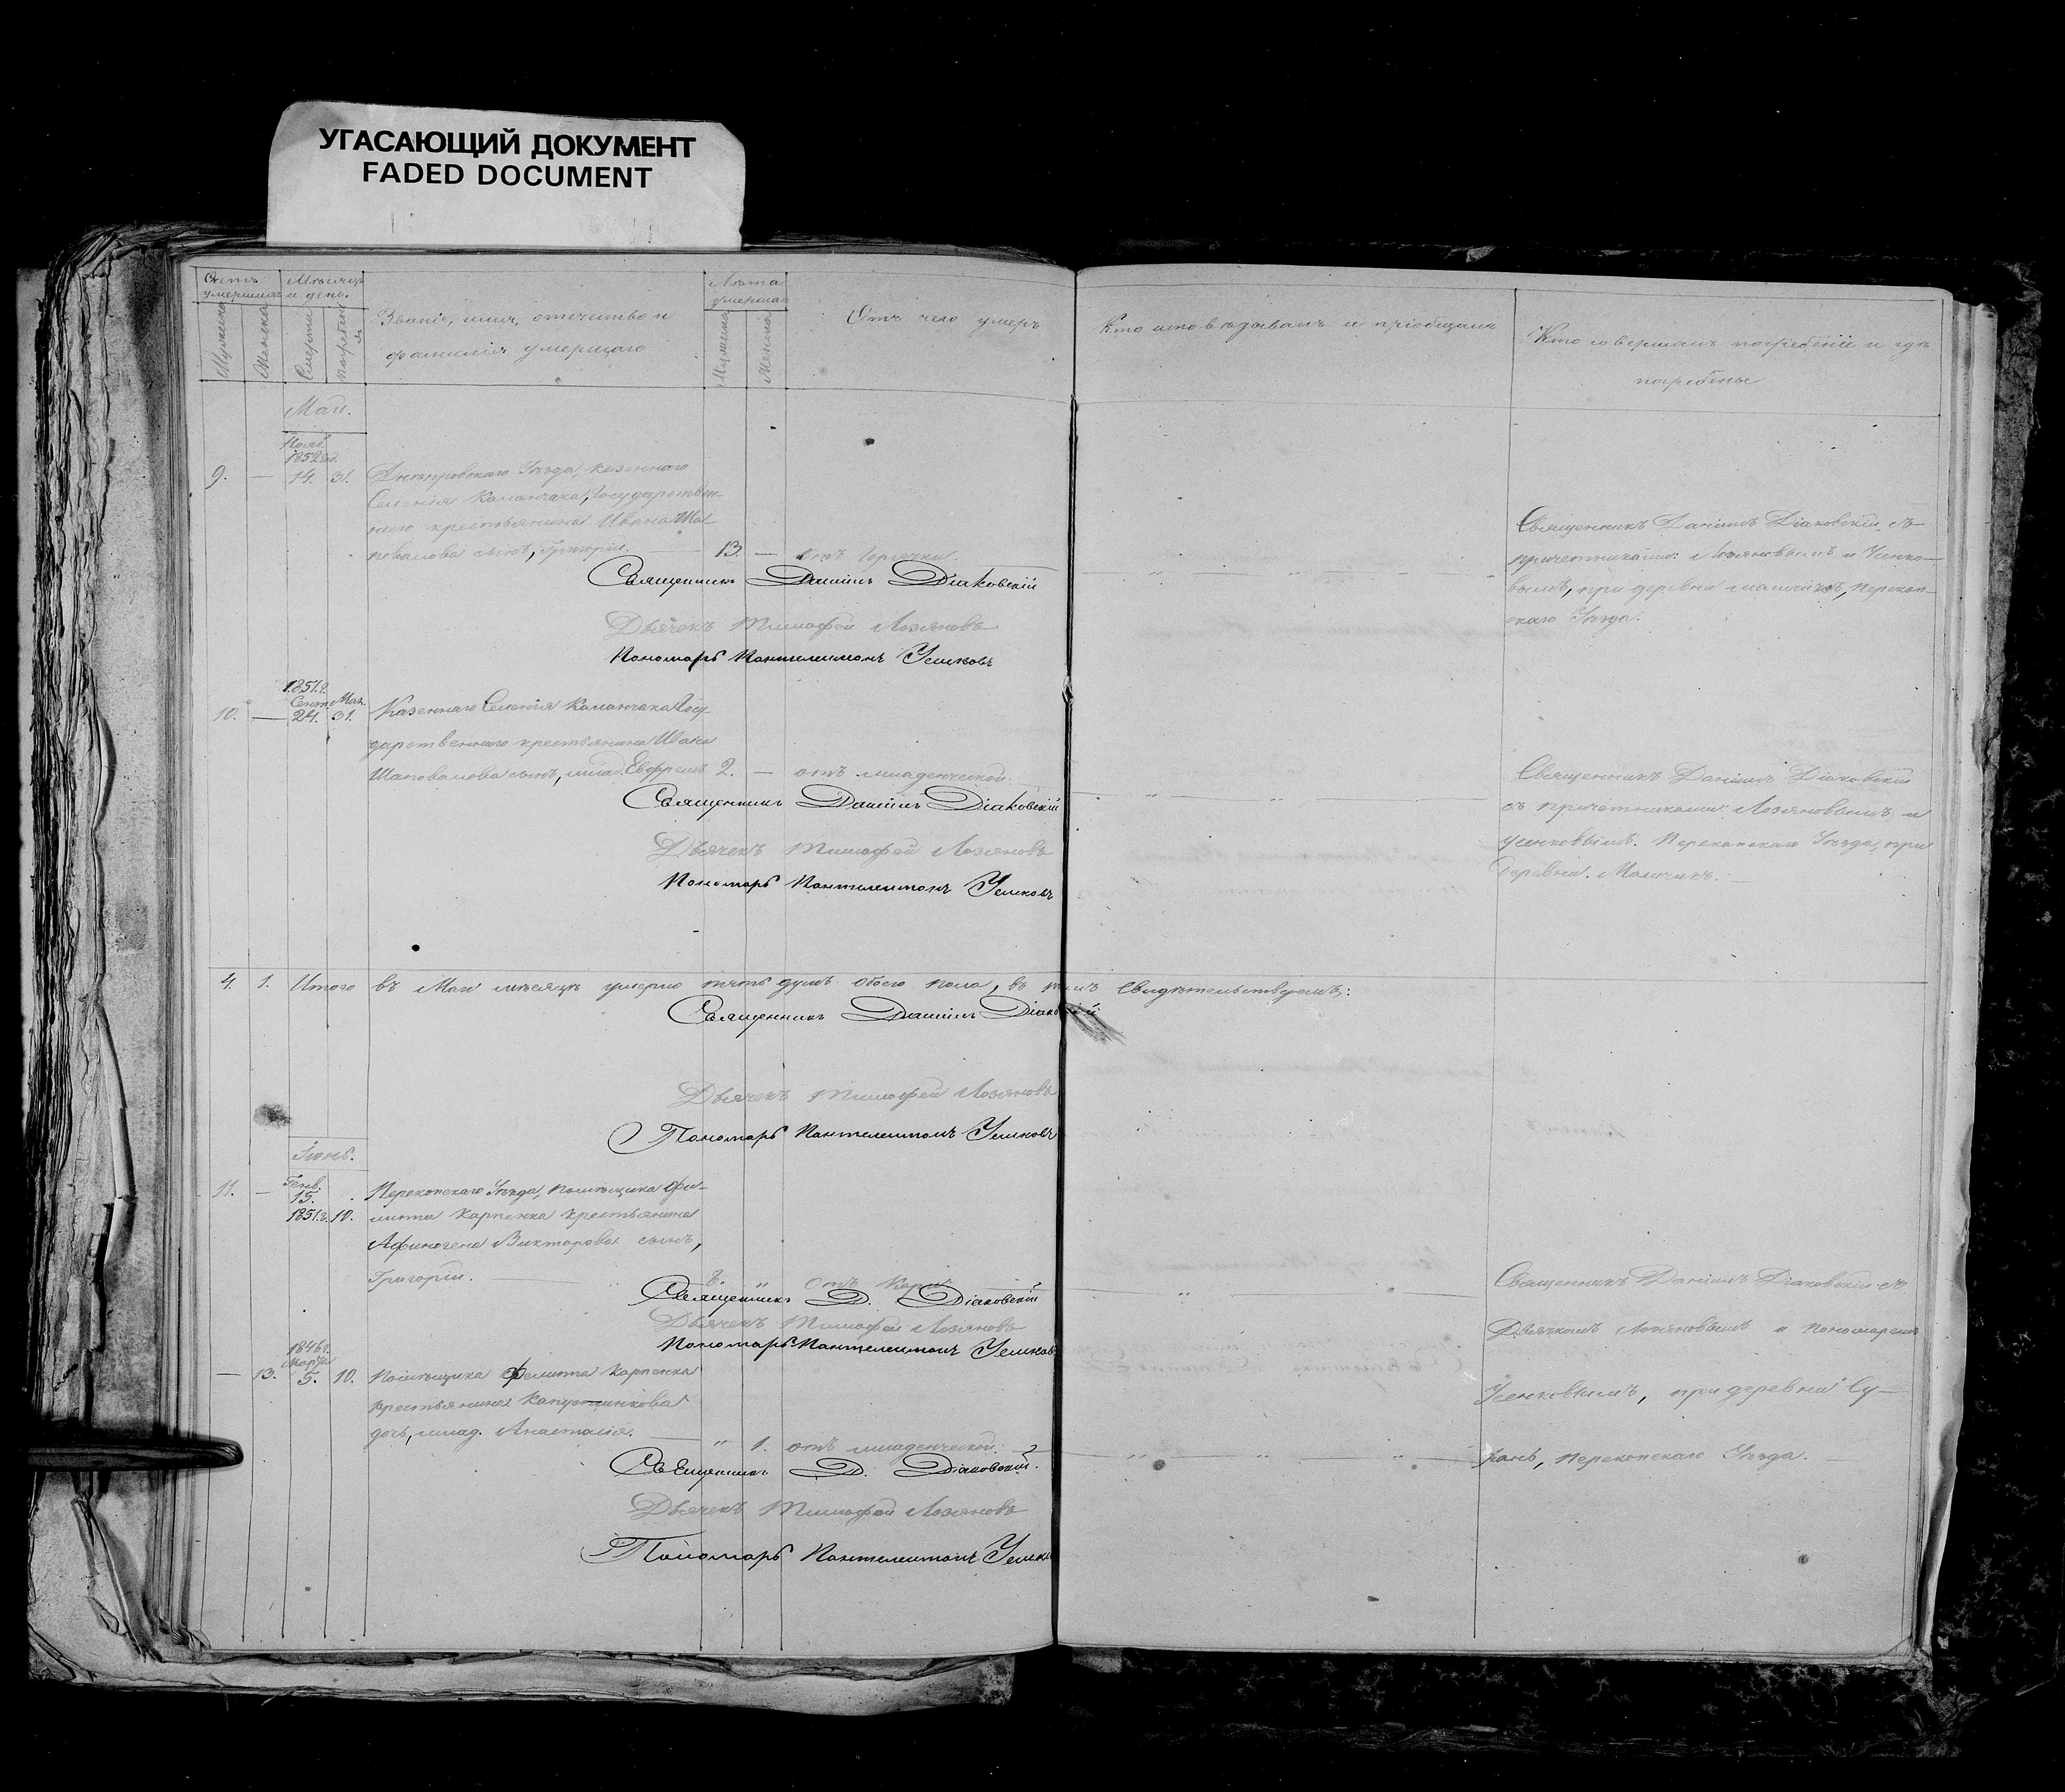 УГАСАЮЩИЙ ДОКУМЕНТ
FADED DOCUMENT
Счетъ умершихъ
Мѣсяцъ и день.
Мужска
Женска
Смерти
погребенія
Званіе, имя, отечество и
фамилія умершаго
Лѣта умершаго
Мужска
Женска
Отъ чего умеръ
Кто исповѣдывалъ и пріобщалъ
Кто совершалъ погребеніе и гдѣ
погребены
Май.
Нояб.
1852
9. — 14. 31. Днѣпровскаго Уѣзда, казеннаго
Селенія Каланчака, Государствен-
наго крестьянина Ивана Ша-
повалова сынъ, Григорій. — 13. — отъ горячки.
Священникъ Даніилъ Діаковскій
Дьячекъ Тимофей Лозяновъ
Пономарь Пантелеимонъ Усенковъ
Священникъ Даніилъ Діаковскій съ
причетниками: Лозяновымъ и Усенко-
вымъ, при деревни, Перекоп-
скаго Уѣзда.
1851.г.
Сент. Мая.
10. — 24. 31. Казеннаго Селенія Каланчака Госу-
дарственнаго крестьянина Ивана
Шаповалова сынъ, млад. Евфремъ 2. — отъ младенческой.
Священникъ Даніилъ Діаковскій
Дьячекъ Тимофей Лозяновъ
Пономарь Пантелеимонъ Усенковъ
Священникъ Даніилъ Діаковскій
съ причетниками: Лозяновымъ и
Усенковымъ. Перекопскаго Уѣзда, при
деревни.
4. 1. Итого въ Маѣ мѣсяцѣ умерло пять душъ обоего пола, въ томъ Свидѣтельствуемъ:
Священникъ Даніилъ Діаковскій
Дьячекъ Тимофей Лозяновъ
Пономарь Пантелеимонъ Усенковъ
Іюнь.
Генв.
11. — 15. Перекопскаго Уѣзда, помѣщика Фи-
1851.г. 10. липа Карпенка крестьянина
Афиногена Викторова сынъ,
Григорій. — 8. " Отъ Кори.
Священникъ Д. Діаковскій
Дьячекъ Тимофей Лозяновъ
Пономарь Пантелеимонъ Усенковъ
Священникъ Даніилъ Діаковскій съ
Дьячкомъ Лозяновымъ и пономаремъ
Усенковымъ, при деревни
Перекопскаго Уѣзда.
1846 г.
Марта
— 13. 5. 10. Помѣщика Карпенка
крестьянина
дочь, млад. Анастасія. — " 1. отъ младенческой.
Священникъ Д. Діаковскій.
Дьячекъ Тимофей Лозяновъ
Пономарь Пантелеимонъ